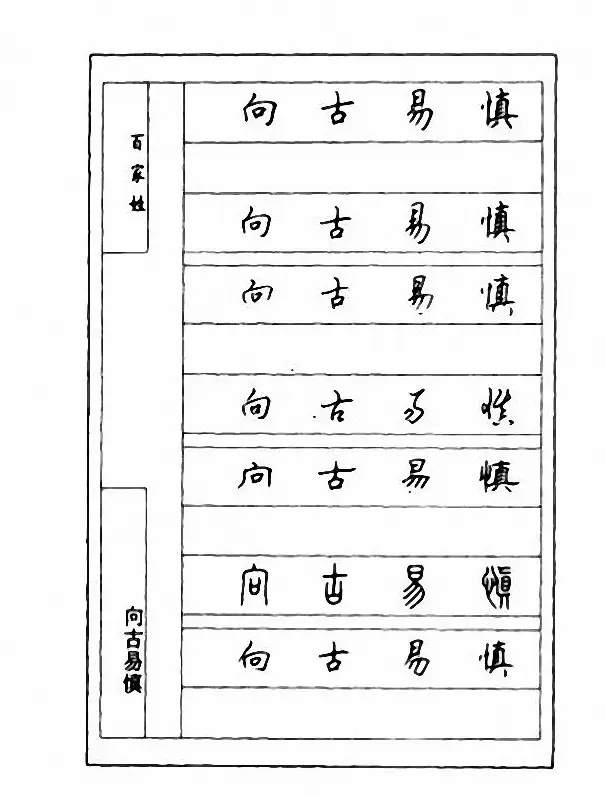 百家姓
向古易慎
向古易慎
向古易慎
向古易慎
向古易慎
向古易慎
向古易慎
向古易慎